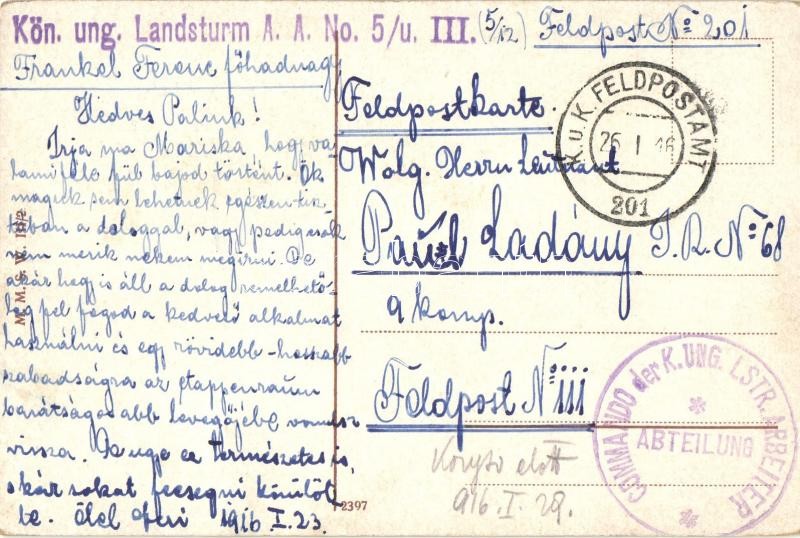 Kön. ung. Landsturm A. A. No. 5/u. III. (5/12) Feldpost No 201
Frankel Ferenc főhadnagy
Kedves Palink!
Irja ma Mariska, hogy va-
lamiféle fül bajod történt. Ők
maguk sem lehetnek egészen tisz-
tában a dologgal, vagy pedig csak
nem merik nekem megirni. De
akár hogy is áll a dolog remélhető-
leg fel fogod a kedvező alkalmat
használni és egy rövidebb-hosszabb
szabadságra az etappenraum
barátságosabb levegőjébe vonulsz
vissza. De ugye ez természetes is,
akár sokat fecsegni körülöt-
te. Ölel Feri 1916.I.23.
M. M. S. W. III/2
2397
Feldpostkarte.
K. u. K. FELDPOSTAMT
26 I 16
201
Wolg. Herrn Leutnant
Paul Ladány I.R. No 68
9 komp.
Feldpost No 111
COMMANDO der K. UNG. LSTR. ARBEITER
ABTEILUNG
előtt
916.I.29.